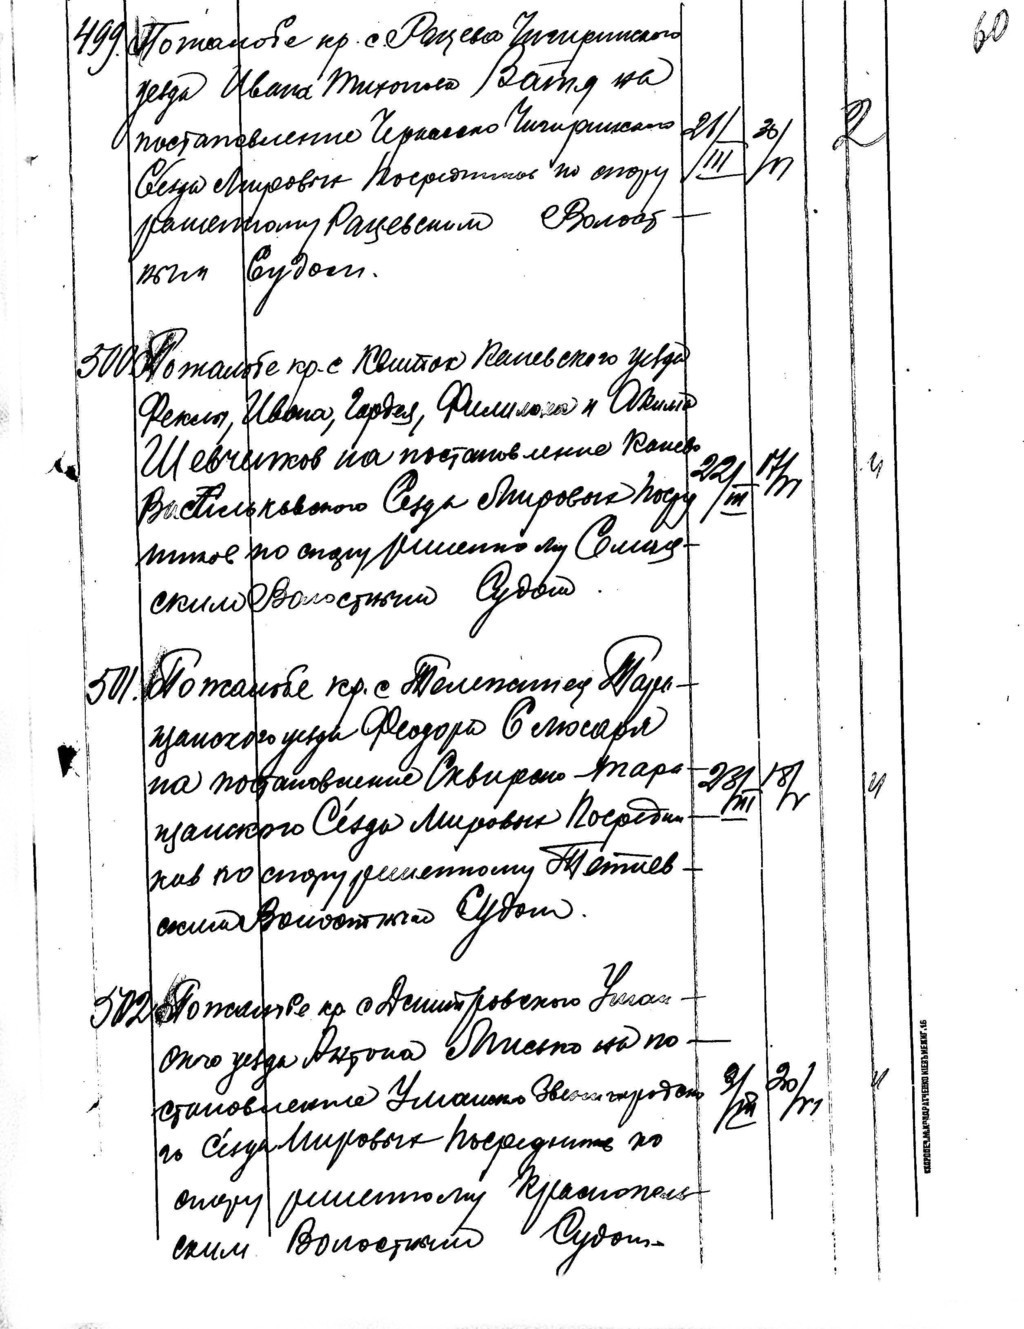 60
499. По жалобе кр. с. Рацева Чигиринского
уезда Ивана Тихонова на
постановление Черкасско Чигиринского
Съезда Мировых Посредников по спору
решенному Рацевским Волост-
ным Судом.
21/III
30/VI
2
500. По жалобе кр. с. Каневского уезда
Феклы, Ивана, Гордея, Филимона и Акима
Шевчуков на постановление Канево
Васильковского Сезда Мировых Посред
ников по спору решенному
ским Волостным Судом.
22/III
17/VI
501. По жалобе кр. с. Тележинец Тара-
щанского уезда Феодора Слюсаря
на постановление Сквирско-Тара-
щанского Сезда Мировых Посредни
ков по спору решенному Тетиев-
ским Волостным Судом.
23/III
18/V
502. По жалобе кр. с. Дмитровского Уман-
ского уезда Антона Мисько на по-
становление Уманско Звенигородско
го Сезда Мировых Посредников по
спору решенному Краснополь-
ским Волостным Судом.
3/III
20/VI